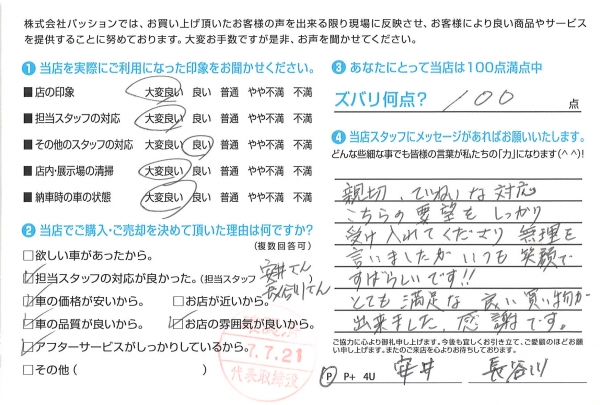 株式会社パッションでは、お買い上げ頂いたお客様の声を出来る限り現場に反映させ、お客様により良い商品やサービス
を提供することに努めております。大変お手数ですが是非、お声を聞かせてください。
1 当店を実際にご利用になった印象をお聞かせください。
■店の印象 大変良い 良い 普通 やや不満 不満
■担当スタッフの対応 大変良い 良い 普通 やや不満 不満
■その他のスタッフの対応 大変良い 良い 普通 やや不満 不満
■店内・展示場の清掃 大変良い 良い 普通 やや不満 不満
■納車時の車の状態 大変良い 良い 普通 やや不満 不満
2 当店でご購入・ご売却を決めて頂いた理由は何ですか?
(複数回答可)
□欲しい車があったから。
☑担当スタッフの対応が良かった。(担当スタッフ 安井さん 長谷川さん)
☑車の価格が安いから。 □お店が近いから。
☑車の品質が良いから。 ☑お店の雰囲気が良いから。
☑アフターサービスがしっかりしているから。
□その他( )
7.7.21
代表取締役
3 あなたにとって当店は100点満点中
ズバリ何点? 100 点
4 当店スタッフにメッセージがあればお願いいたします。
どんな些細な事でも皆様の言葉が私たちの「力」になります(^^)!
親切、ていねいな対応
こちらの要望をしっかり
受け入れてくださり 無理を
言いましたが いつも笑顔で
すばらしいです!!
とても満足な 良い買い物が
出来ました、感謝です。
ご協力に心より御礼申し上げます。今後も宜しくお引き立て、ご愛顧のほどお願
い申し上げます。またのご来店を心よりお待ちしております。
P P+ 4U 安井 長谷川